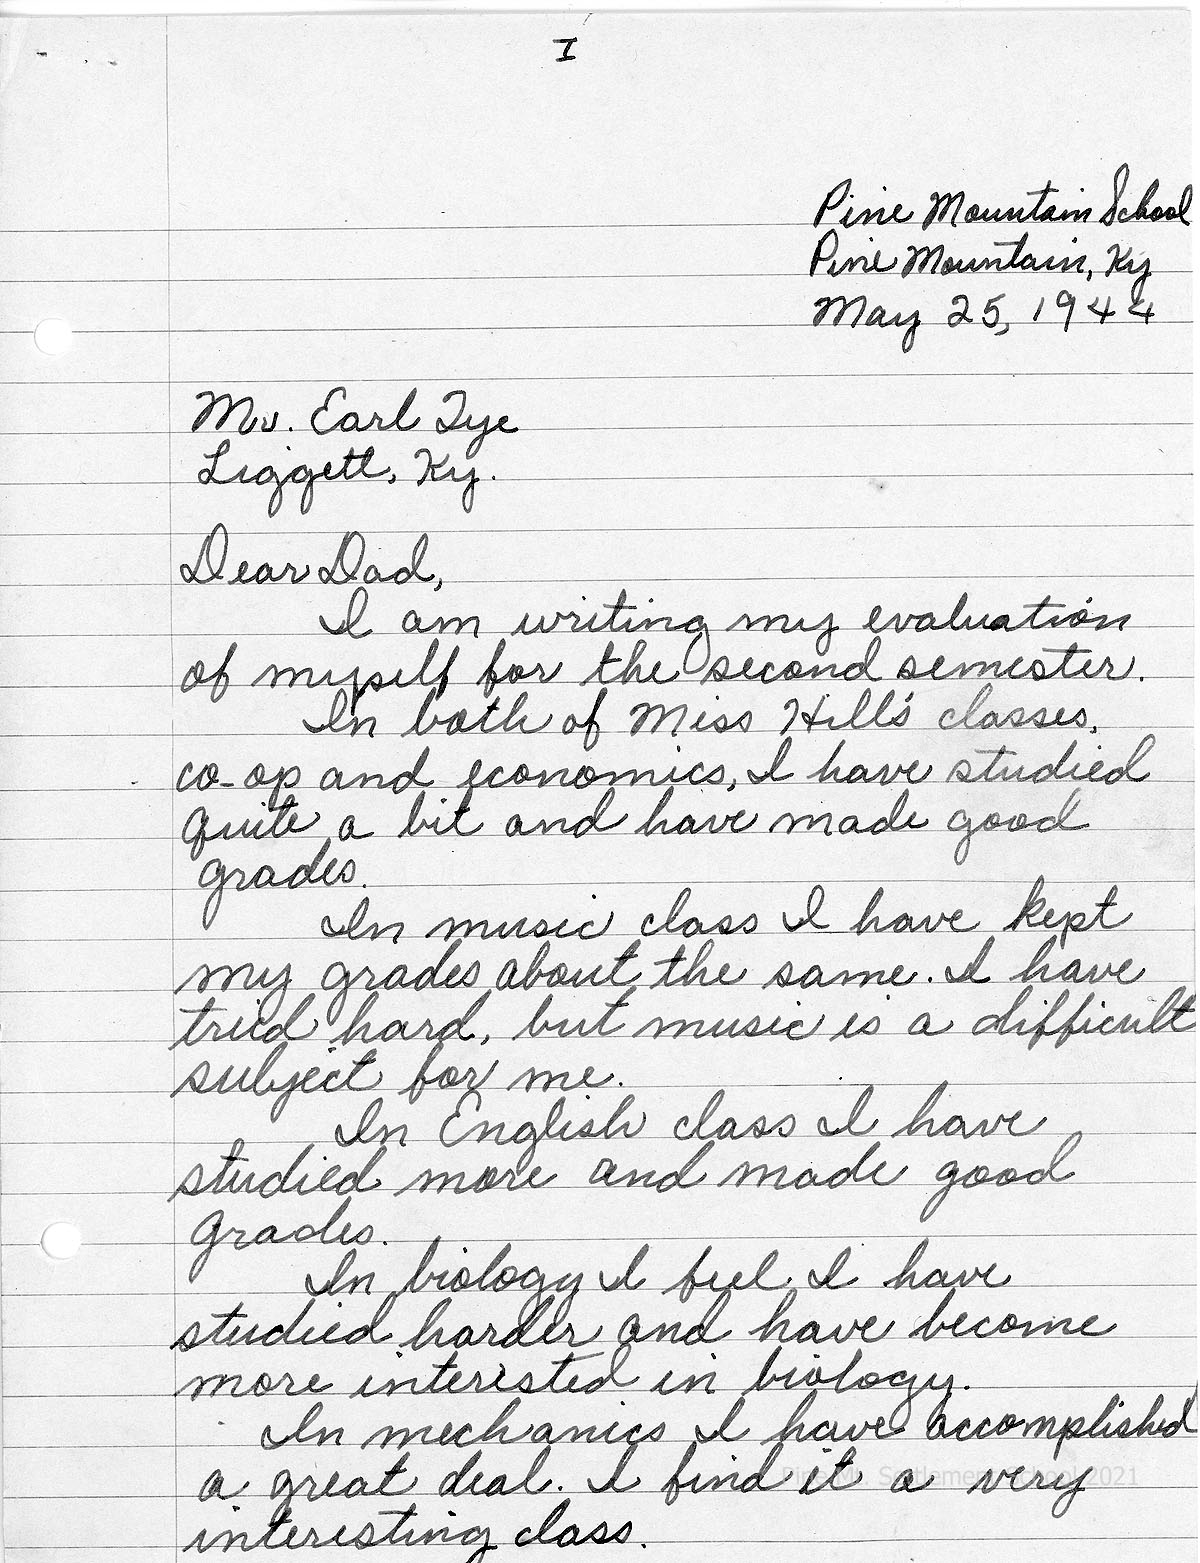 I
Pine Mountain School
Pine Mountain, Ky
May 25, 1944
Mr. Earl Tye
Liggett, Ky.
Dear Dad,
I am writing my evaluation
of myself for the second semester.
In both of Miss Hill's classes,
co-op and economics, I have studied
quite a bit and have made good
grades.
In music class I have kept
my grades about the same. I have
tried hard, but music is a difficult
subject for me.
In English class I have
studied more and made good
grades.
In biology I feel I have
studied harder and have become
more interested in biology.
In mechanics I have accomplished
a great deal. I find it a very
interesting class.
Pine Mt. Settlement School 2021